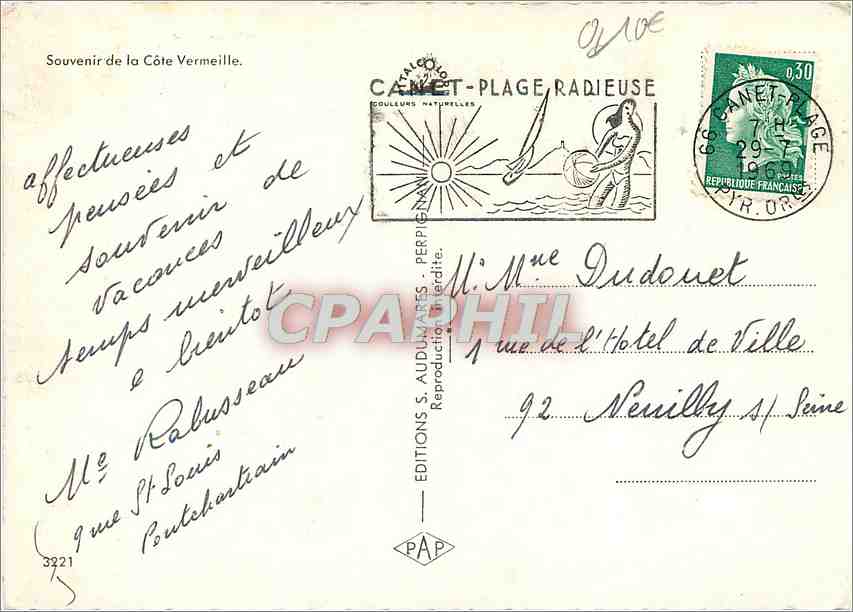 0,10€
Souvenir de la Côte Vermeille.
ITALCOLOR
CANET-PLAGE RADIEUSE
COULEURS NATURELLES
0,30
POSTES
REPUBLIQUE FRANÇAISE
66 CANET-PLAGE
7 H
29-7
1969
PYR. ORLES
affectueuses
pensées et
souvenir de
vacances
temps merveilleux
a bientot
Me Rabusseau
9 rue St Louis
Pontchartrain
3221
EDITIONS S. AUDUMARES - PERPIGNAN
Reproduction interdite.
PAP
CPAPHIL
Mr Mme Dudouet
1 rue de l'Hotel de Ville
92 Neuilly s/ Seine